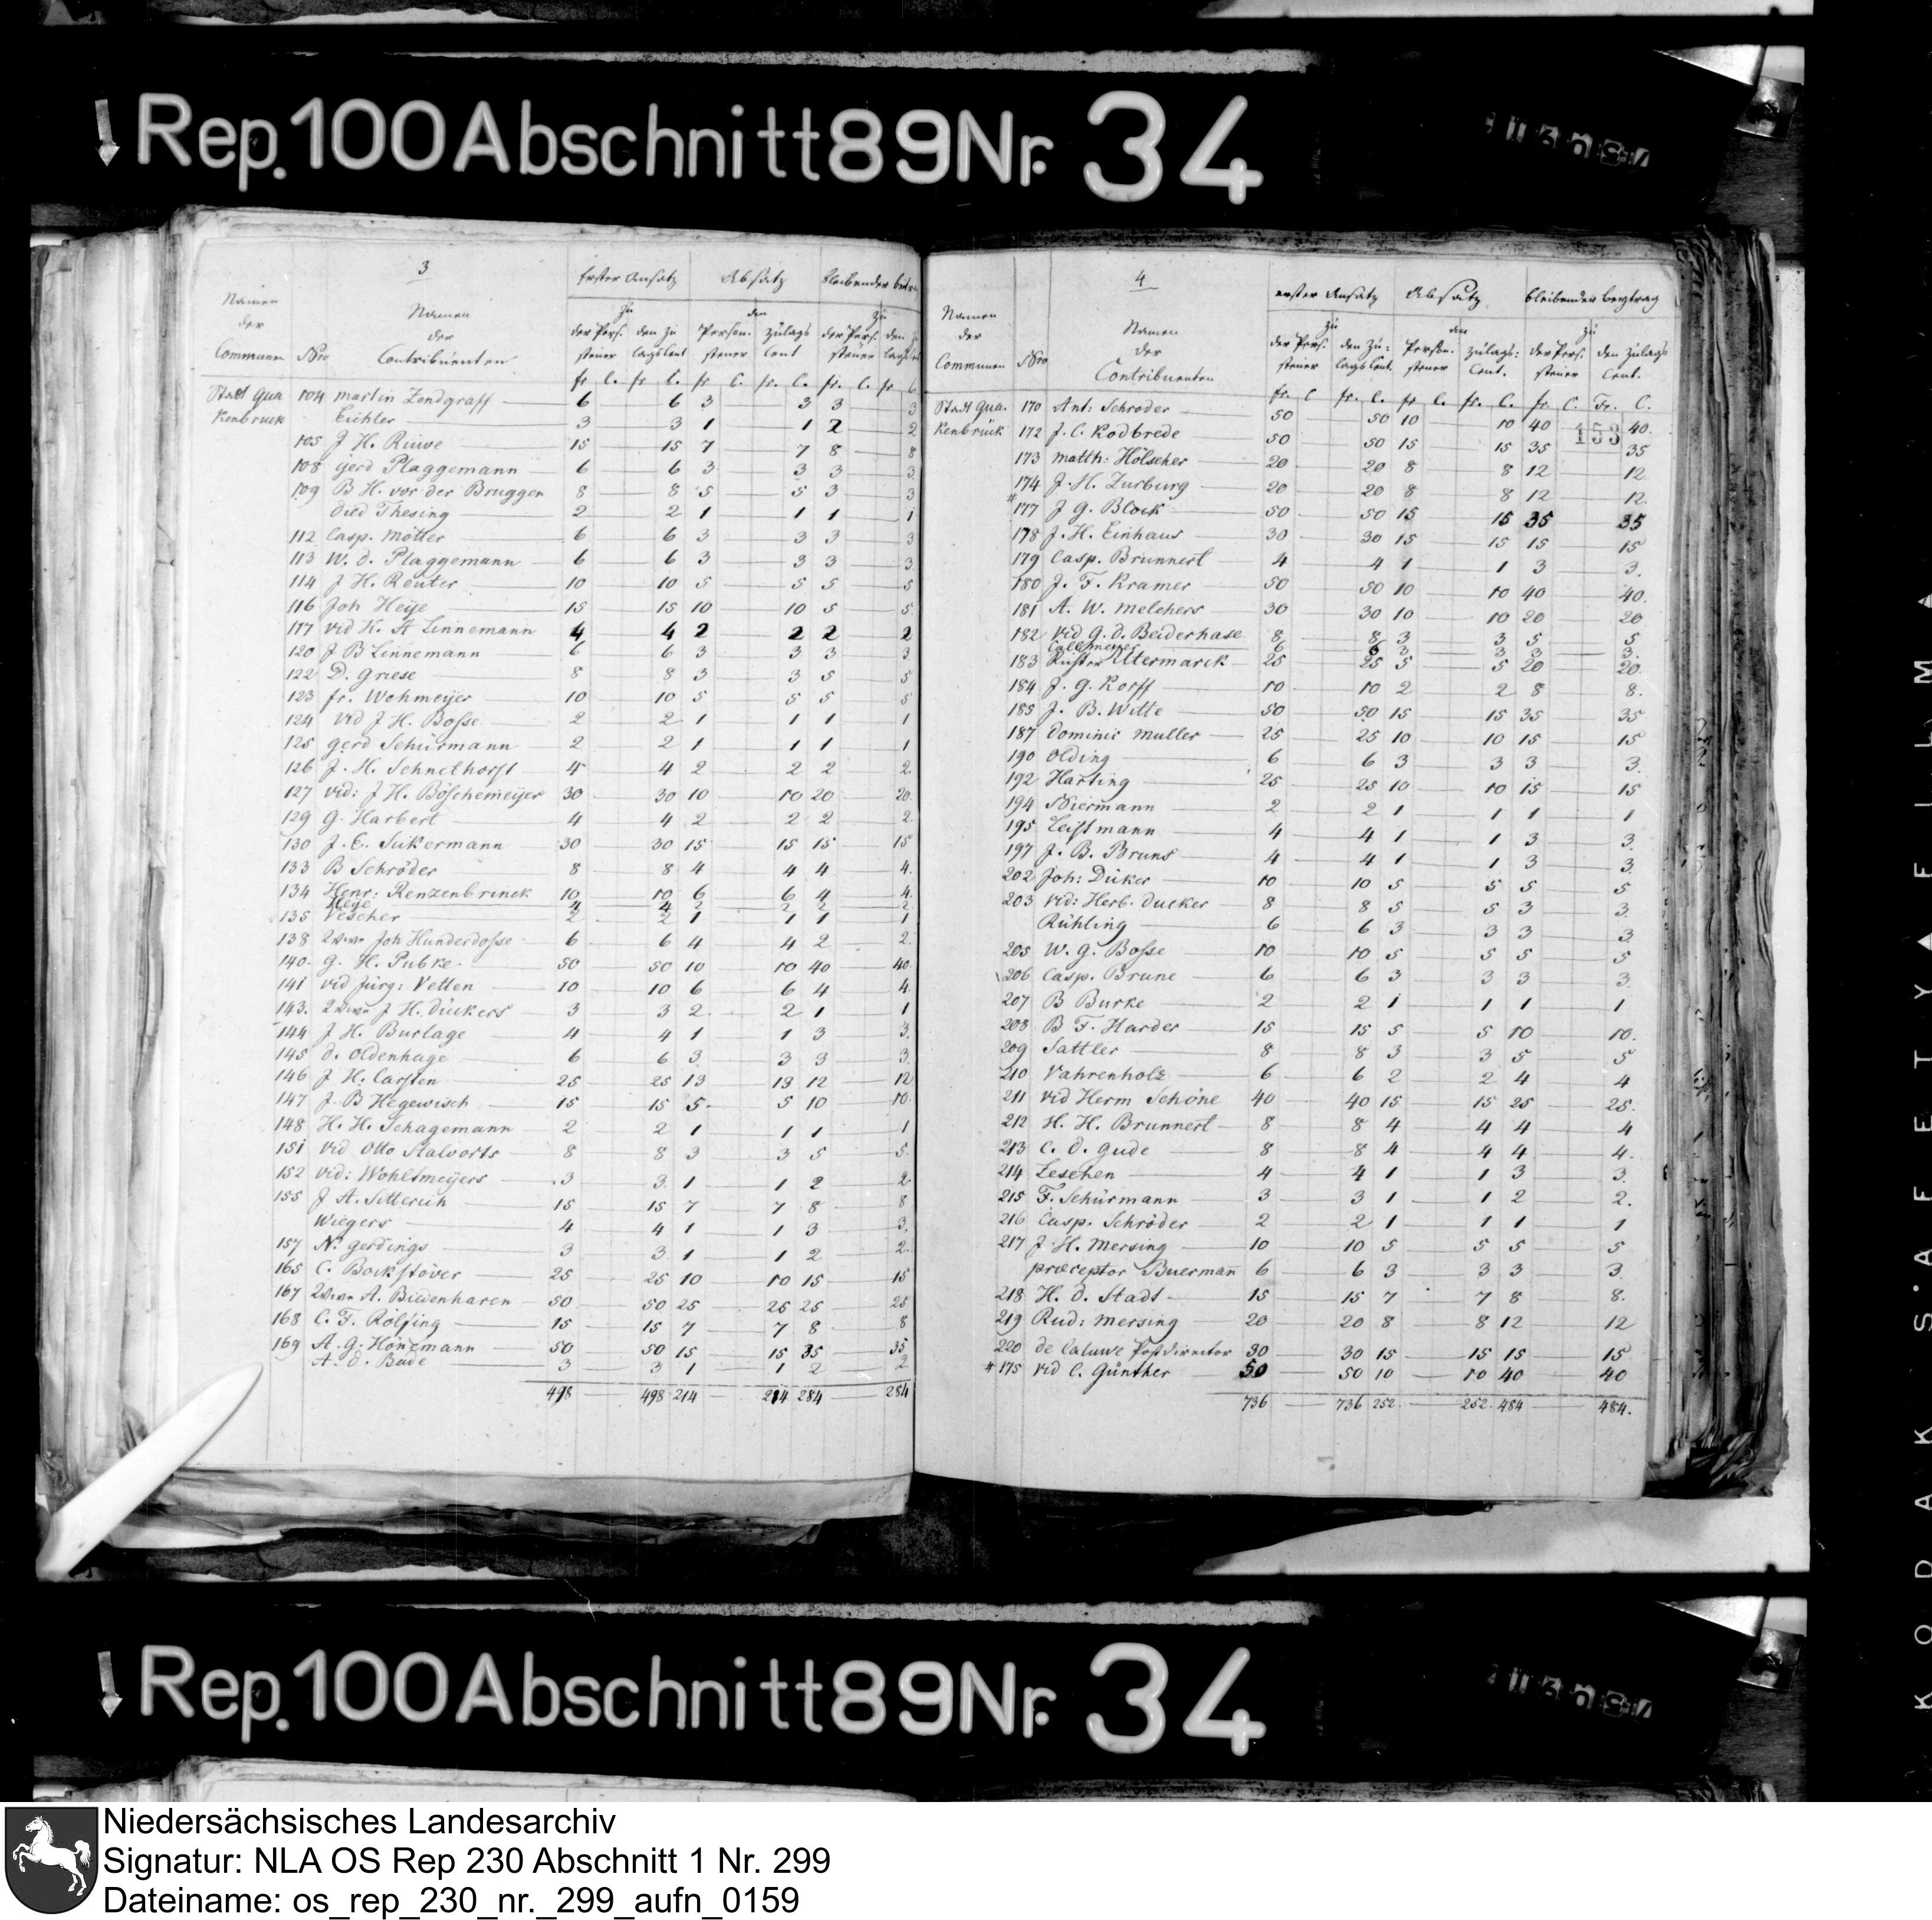 Rep. 100 Abschnitt 89 Nr. 34
3
Erster Ansatz Absatz bleibender
Namen der Communen Nro Namen der Contribuenten
zu der Pers. steuer den zu lags Cent den Person. steuer zulags Cent zu der Pers. steuer den
fr. C. fr. C. fr C. fr. C. fr. C. fr C.
Stadt Qua 104 Martin Zendgraff 6 6 3 3 3 3
kenbrück Eichler 3 3 1 1 2 2
105 J H. Rüwe 15 15 7 7 8 8
108 Gerd Plaggemann 6 6 3 3 3 3
109 B H. vor der Bruggen 8 8 5 5 3 3
Died Thesing 2 2 1 1 1 1
112 Casp. Mötter 6 6 3 3 3 3
113 W. D. Plaggemann 6 6 3 3 3 3
114 J H. Reuter 10 10 5 5 5 5
116 Joh Heye 15 15 10 10 5 5
117 vid H. A Linnemann 4 4 2 2 2 2
120 J B Linnemann 6 6 3 3 3 3
122 D. Griese 8 8 3 3 5 5
123 fr. Wohmeyer 10 10 5 5 5 5
124 vid J H. Bosse 2 2 1 1 1 1
125 Gerd Schürmann 2 2 1 1 1 1
126 J. H. Schnethorst 4 4 2 2 2 2
127 vid: J H. Böschemeyer 30 30 10 10 20 20
129 G. Harbert 4 4 2 2 2 2
130 J. E. Sükermann 30 30 15 15 15 15
133 B Schröder 8 8 4 4 4 4
134 Henr: Renzenbrinck 10 10 6 6 4 4
Heye 4 4 2 2 2 2
135 Vescher 2 2 1 1 1 1
138 Joh Hunderdosse 6 6 4 4 2 2
140 G. H. Pubke 50 50 10 10 40 40
141 vid Jürg: Vetten 10 10 6 6 4 4
143 J H. Dückers 3 3 2 2 1 1
144 J H. Burlage 4 4 1 1 3 3
145 D. Oldenhage 6 6 3 3 3 3
146 J H. Carsten 25 25 13 13 12 12
147 J. B Hegewisch 15 15 5 5 10 10
148 H. H. Schagemann 2 2 1 1 1 1
151 vid Otto Stalvorts 8 8 3 3 5 5
152 vid: Wohltmeyers 3 3 1 1 2 2
155 J A. Sitterich 15 15 7 7 8 8
Wiegers 4 4 1 1 3 3
157 N. Gerdings 3 3 1 1 2 2
165 C. Bockstöver 25 25 10 10 15 15
167 A. Biedenharen 50 50 25 25 25 25
168 C. F. Rölfing 15 15 7 7 8 8
169 A. G. Hönemann 50 50 15 15 35 35
A. D. Bude 3 3 1 1 2 2
498 498 214 214 284 284
4
erster Ansatz Absatz bleibender beytrag
Namen der Communen Nro Namen der Contribuenten
zu der Pers. steuer den zu: lags Cent. den Person. steuer zulags: Cent. zu der Pers. steuer den zulags Cent.
fr. C fr. C. fr C. fr. C. fr. C. Fr. C.
153
Stadt Qua. 170 Ant: Schroder 50 50 10 10 40 40
kenbrück 172 J. C. Rodbrede 50 50 15 15 35 35
173 Matth: Hölscher 20 20 8 8 12 12
174 J. H. Zurburg 20 20 8 8 12 12
# 177 J G. Block 50 50 15 15 35 35
178 J. H. Einhaus 30 30 15 15 15 15
179 Casp. Brunnert 4 4 1 1 3 3
180 J. F. Kramer 50 50 10 10 40 40
181 A. W. Melchers 30 30 10 10 20 20
182 vid G. D. Beiderhase 8 8 3 3 5 5
Callmeyer 6 6 3 3 3 3
183 Richter Utermarck 25 25 5 5 20 20
184 J. G. Korff 10 10 2 2 8 8
185 J. B. Witte 50 50 15 15 35 35
187 Dominic Muller 25 25 10 10 15 15
190 Olding 6 6 3 3 3 3
192 Harting 25 25 10 10 15 15
194 Niermann 2 2 1 1 1 1
195 Leistmann 4 4 1 1 3 3
197 J. B. Bruns 4 4 1 1 3 3
202 Joh: Düker 10 10 5 5 5 5
203 vid: Herb. Ducker 8 8 5 5 3 3
Rühling 6 6 3 3 3 3
205 W. G. Bosse 10 10 5 5 5 5
206 Casp. Brune 6 6 3 3 3 3
207 B Burke 2 2 1 1 1 1
208 B F. Harder 15 15 5 5 10 10
209 Sattler 8 8 3 3 5 5
210 Vahrenholz 6 6 2 2 4 4
211 vid Herm Schöne 40 40 15 15 25 25
212 H. H. Brunnert 8 8 4 4 4 4
213 C. D. Gude 8 8 4 4 4 4
214 Leschen 4 4 1 1 3 3
215 F. Schürmann 3 3 1 1 2 2
216 Casp. Schröder 2 2 1 1 1 1
217 J. H. Mersing 10 10 5 5 5 5
præceptor Buermañ 6 6 3 3 3 3
218 H. D. Stadt 15 15 7 7 8 8
219 Rud: Mersing 20 20 8 8 12 12
220 de Caluwe Postdirector 30 30 15 15 15 15
# 175 vid C. Günther 50 50 10 10 40 40
736 736 252 252 484 484
KODAK SAFETY FILM
Rep. 100 Abschnitt 89 Nr. 34
Niedersächsisches Landesarchiv
Signatur: NLA OS Rep 230 Abschnitt 1 Nr. 299
Dateiname: os_rep_230_nr._299_aufn_0159